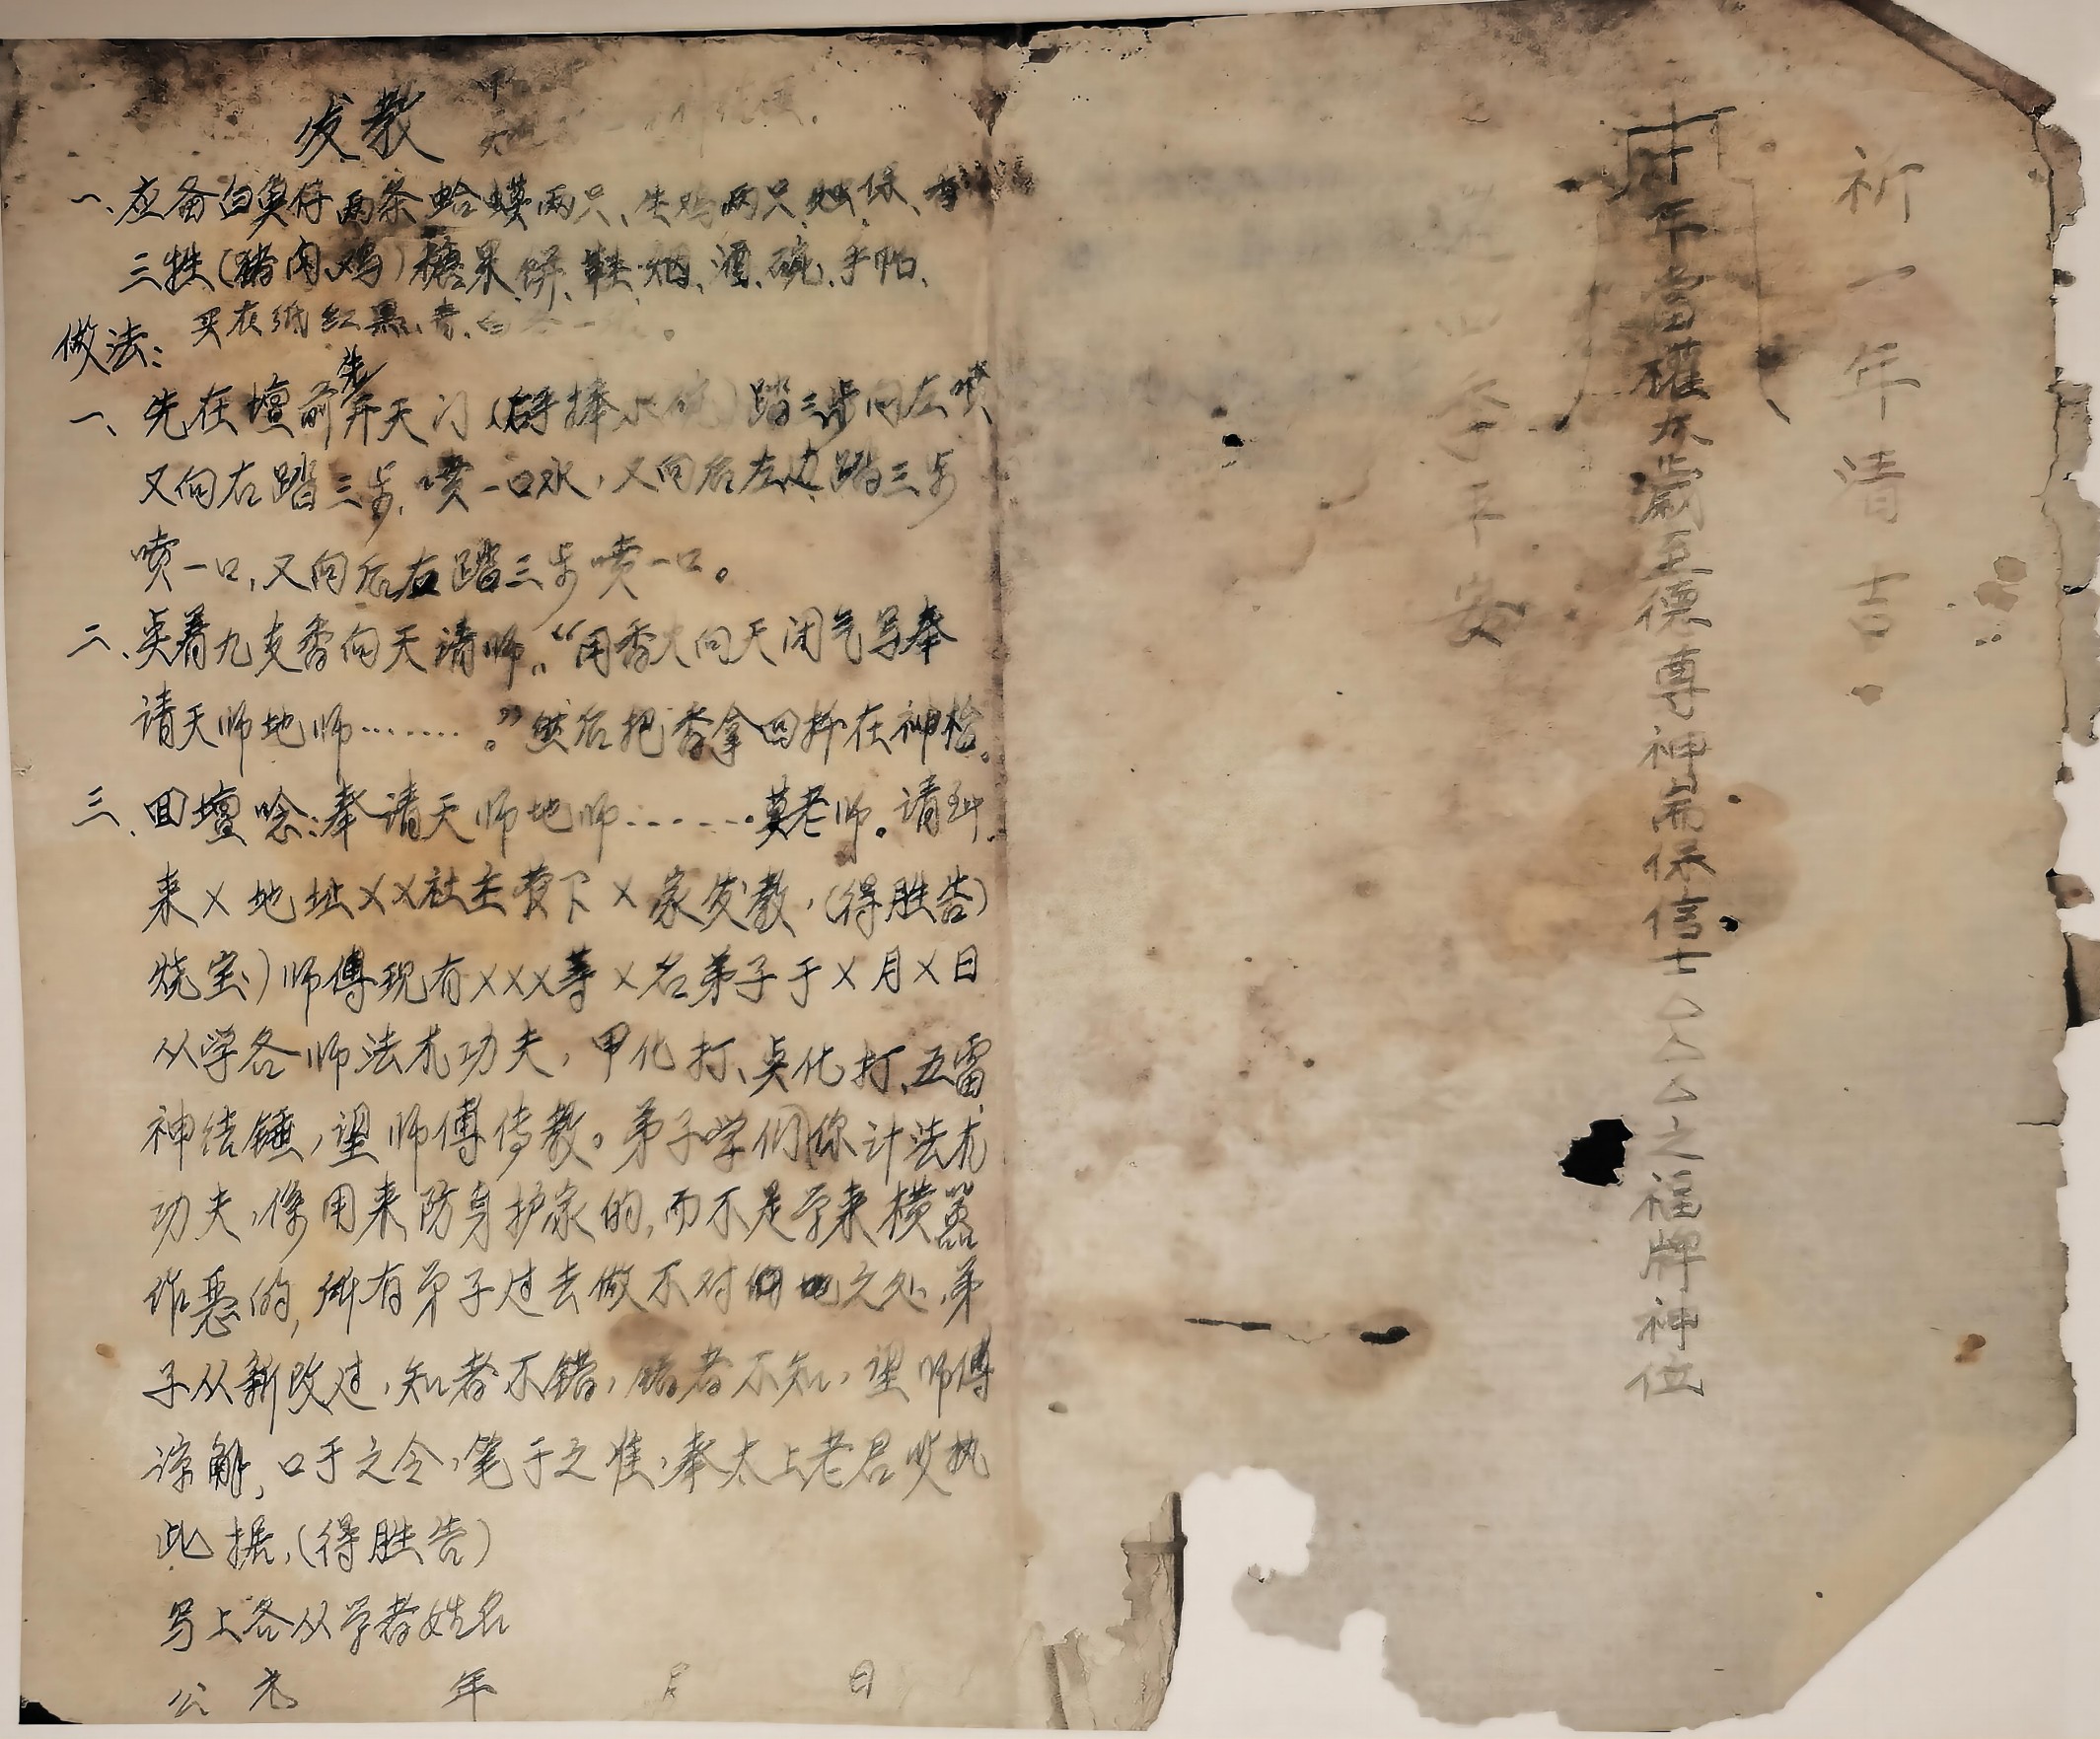 发教
一、应备白臭仔两条蛤蟆两只、生鸡两只
三牲(猪肉鸡)糖果、饼、鞋、烟、酒、碗、手帕、
买衣纸红黑、青、白各一
做法:
一、先在壇前先开天门(右手捧水碗)踏三步向左喷
又向右踏三步,喷一口水,又向后左边踏三步
喷一口,又向后右踏三步喷一口。
二、点着九支香向天请师。“用香火向天闭气写奉
请天师地师……。”然后把香拿回拆在神枱。
三、回壇唸:奉请天师地师……莫老师。请到
来X地址XX社主管下X家发教,(得胜告)
烧宝)师傅现有XXX等X名弟子于X月X日
从学各师法术功夫,甲化打、点化打、五雷
神结锤,望师傅传教。弟子学们你计法术
功夫,係用来防身护家的,而不是学来横嚣
作恶的,所有弟子过去做不对的地之处,弟
子从新改过,知者不错,错者不知,望师傅
谅解,口于之令,笔于之准,奉太上老君
此据,(得胜告)
写上各从学者姓名
公元 年 月 日
祈一年清吉
年當權太歲至德尊神扁保信士△△△之福牌神位
季平安